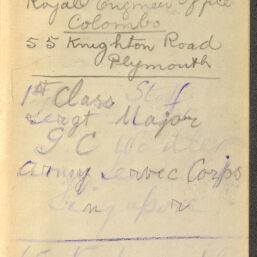 Royal Engineer Office
Colombo
55 Knighton Road
Plymouth
1st Class Staff
Sergt Major
G C
Army Servec Corps
Singapore